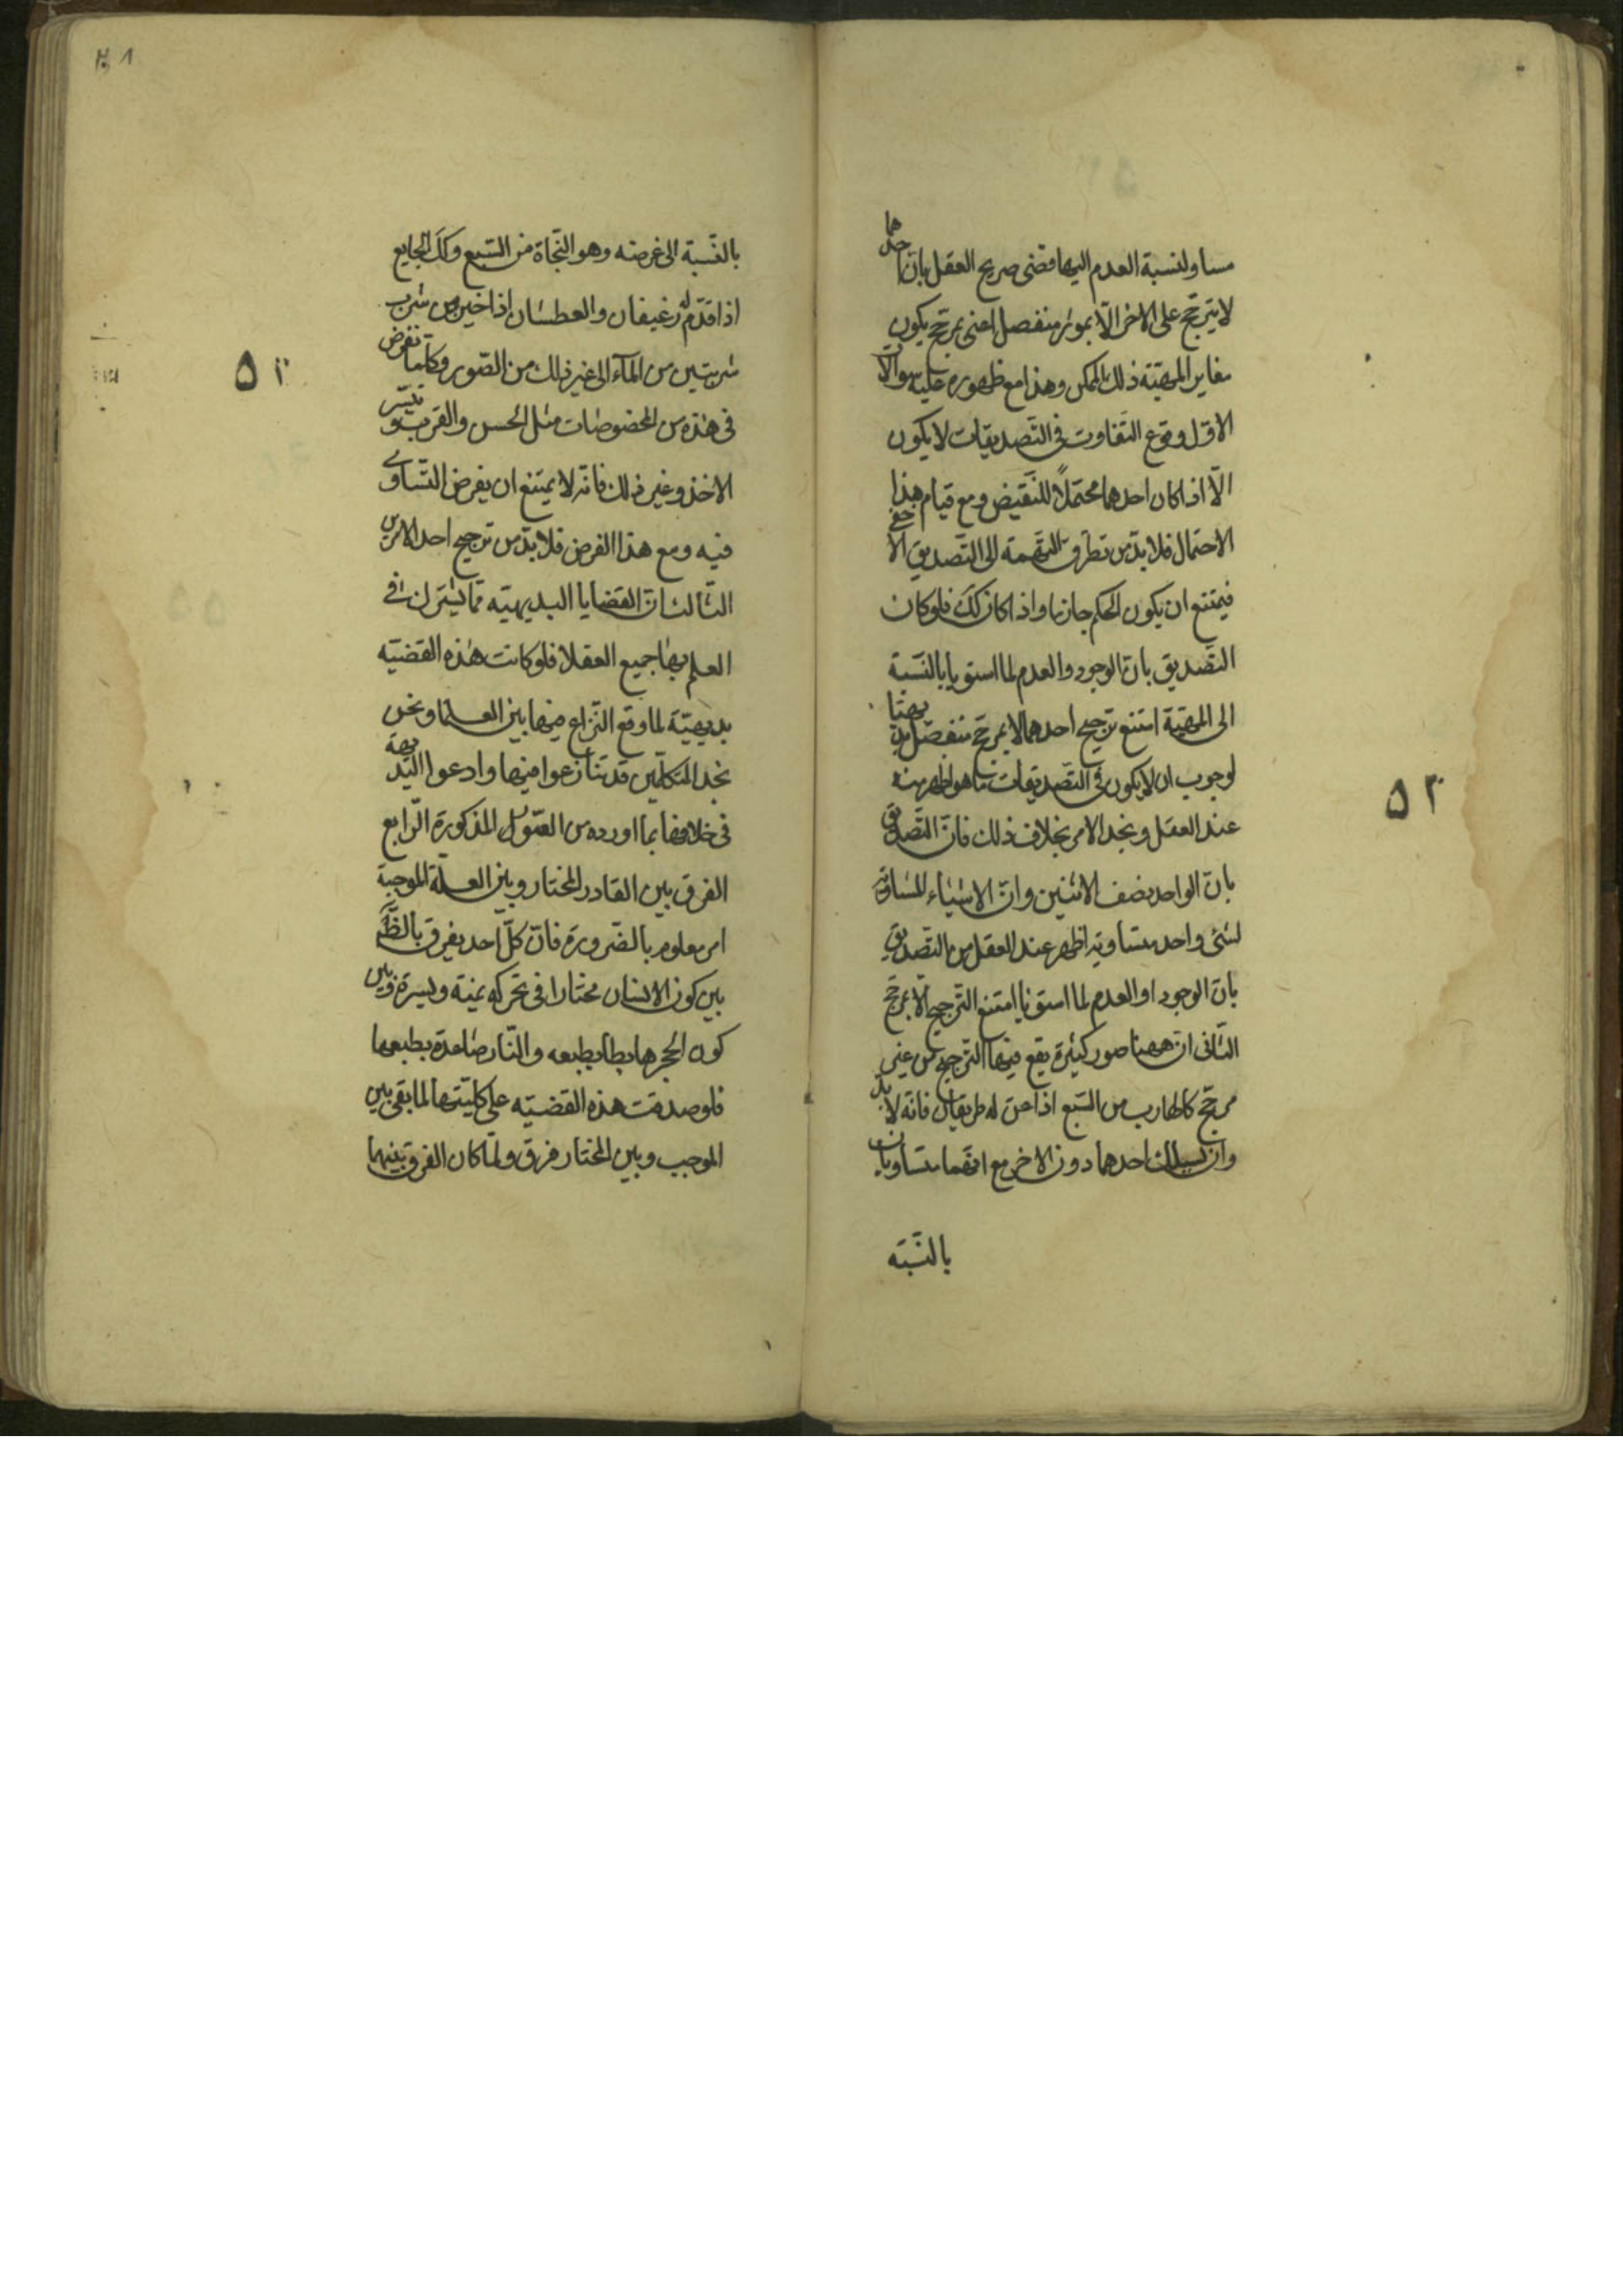 مساو لنسبة العدم اليها قضى صريح العقل بان احدهما
لا يترجح على الاخر الّا بموثر منفصل اعنى بمرجح يكون
مغاير المهيّة ذلك الممكن وهذا مع ظهوره عليه سوالات
الاوّل وقوع التفاوت فى التصديقات لا يكون
الّا اذا كان احدهما محتملًا للنقيض ومع قيام هذا
الاحتمال فلا بدّ من تطرق التهمة الى التصديق الاخفى
فيمتنع ان يكون الحكم جازما واذا كان كك فلو كان
التصديق بانّ الوجود والعدم لما استويا بالنسبة
الى المهيّة امتنع ترجيح احدهما الا بمرجح منفصل بديهيّا
لوجوب ان لا يكون فى التصديقات ما هو اظهر منه
عند العقل ونجد الامر بخلاف ذلك فانّ التصديق
بان الواحد نصف الاثنين وانّ الاشياء المساوية
لشئ واحد متساوية اظهر عند العقل من التصديق
بانّ الوجود او العدم لما استويا امتنع الترجيح الّا بمرجح
الثانى ان ههنا صور كثيرة يقع فيها الترجيح من غير
مرجح كالهارب من السّبع اذا عنّ له طريقان فانّه لا بدّ
وان يسلك احدهما دون الاخر مع انهما متساويان
بالنسبة
٥٢
٢٨
بالنسبة الى غرضه وهو النجاة من السبع وكك الجايع
اذا قدّم له رغيفان والعطشان اذا خير بين شرب
شربتين من المآء الى غير ذلك من الصّور وكلّما نفرض
فى هذه من المخصوصات مثل الحسن والقرب و تيسّر
الاخذ وغير ذلك فانّه لا يمتنع ان يفرض التساوى
فيه ومع هذا الفرض فلا بدّ من ترجيح احد الامرين
الثالث انّ القضايا البديهيّه ممّا يشترك فى
العلم بها جميع العقلا فلو كانت هذه القضيّه
بديهيّة لما وقع النزاع فيها بين العلما ونحن
نجد المتكلّمين قد تنازعوا فيها وادعوا البديهة
فى خلافها بما اورده من الصّور المذكورة الرّابع
الفرق بين القادر المختار وبين العلّة الموجبة
امر معلوم بالضّرورة فانّ كلّ احد يفرق بالضّرورة
بين كون الانسان مختارا فى تحركه يمنة ويسرة وبين
كون الحجر هابطا بطبعه والنّار صاعدة بطبعها
فلو صدقت هذه القضيّه على كليّتها لما بقى بين
الموجب وبين المختار فرق ولمّا كان الفرق بينهما